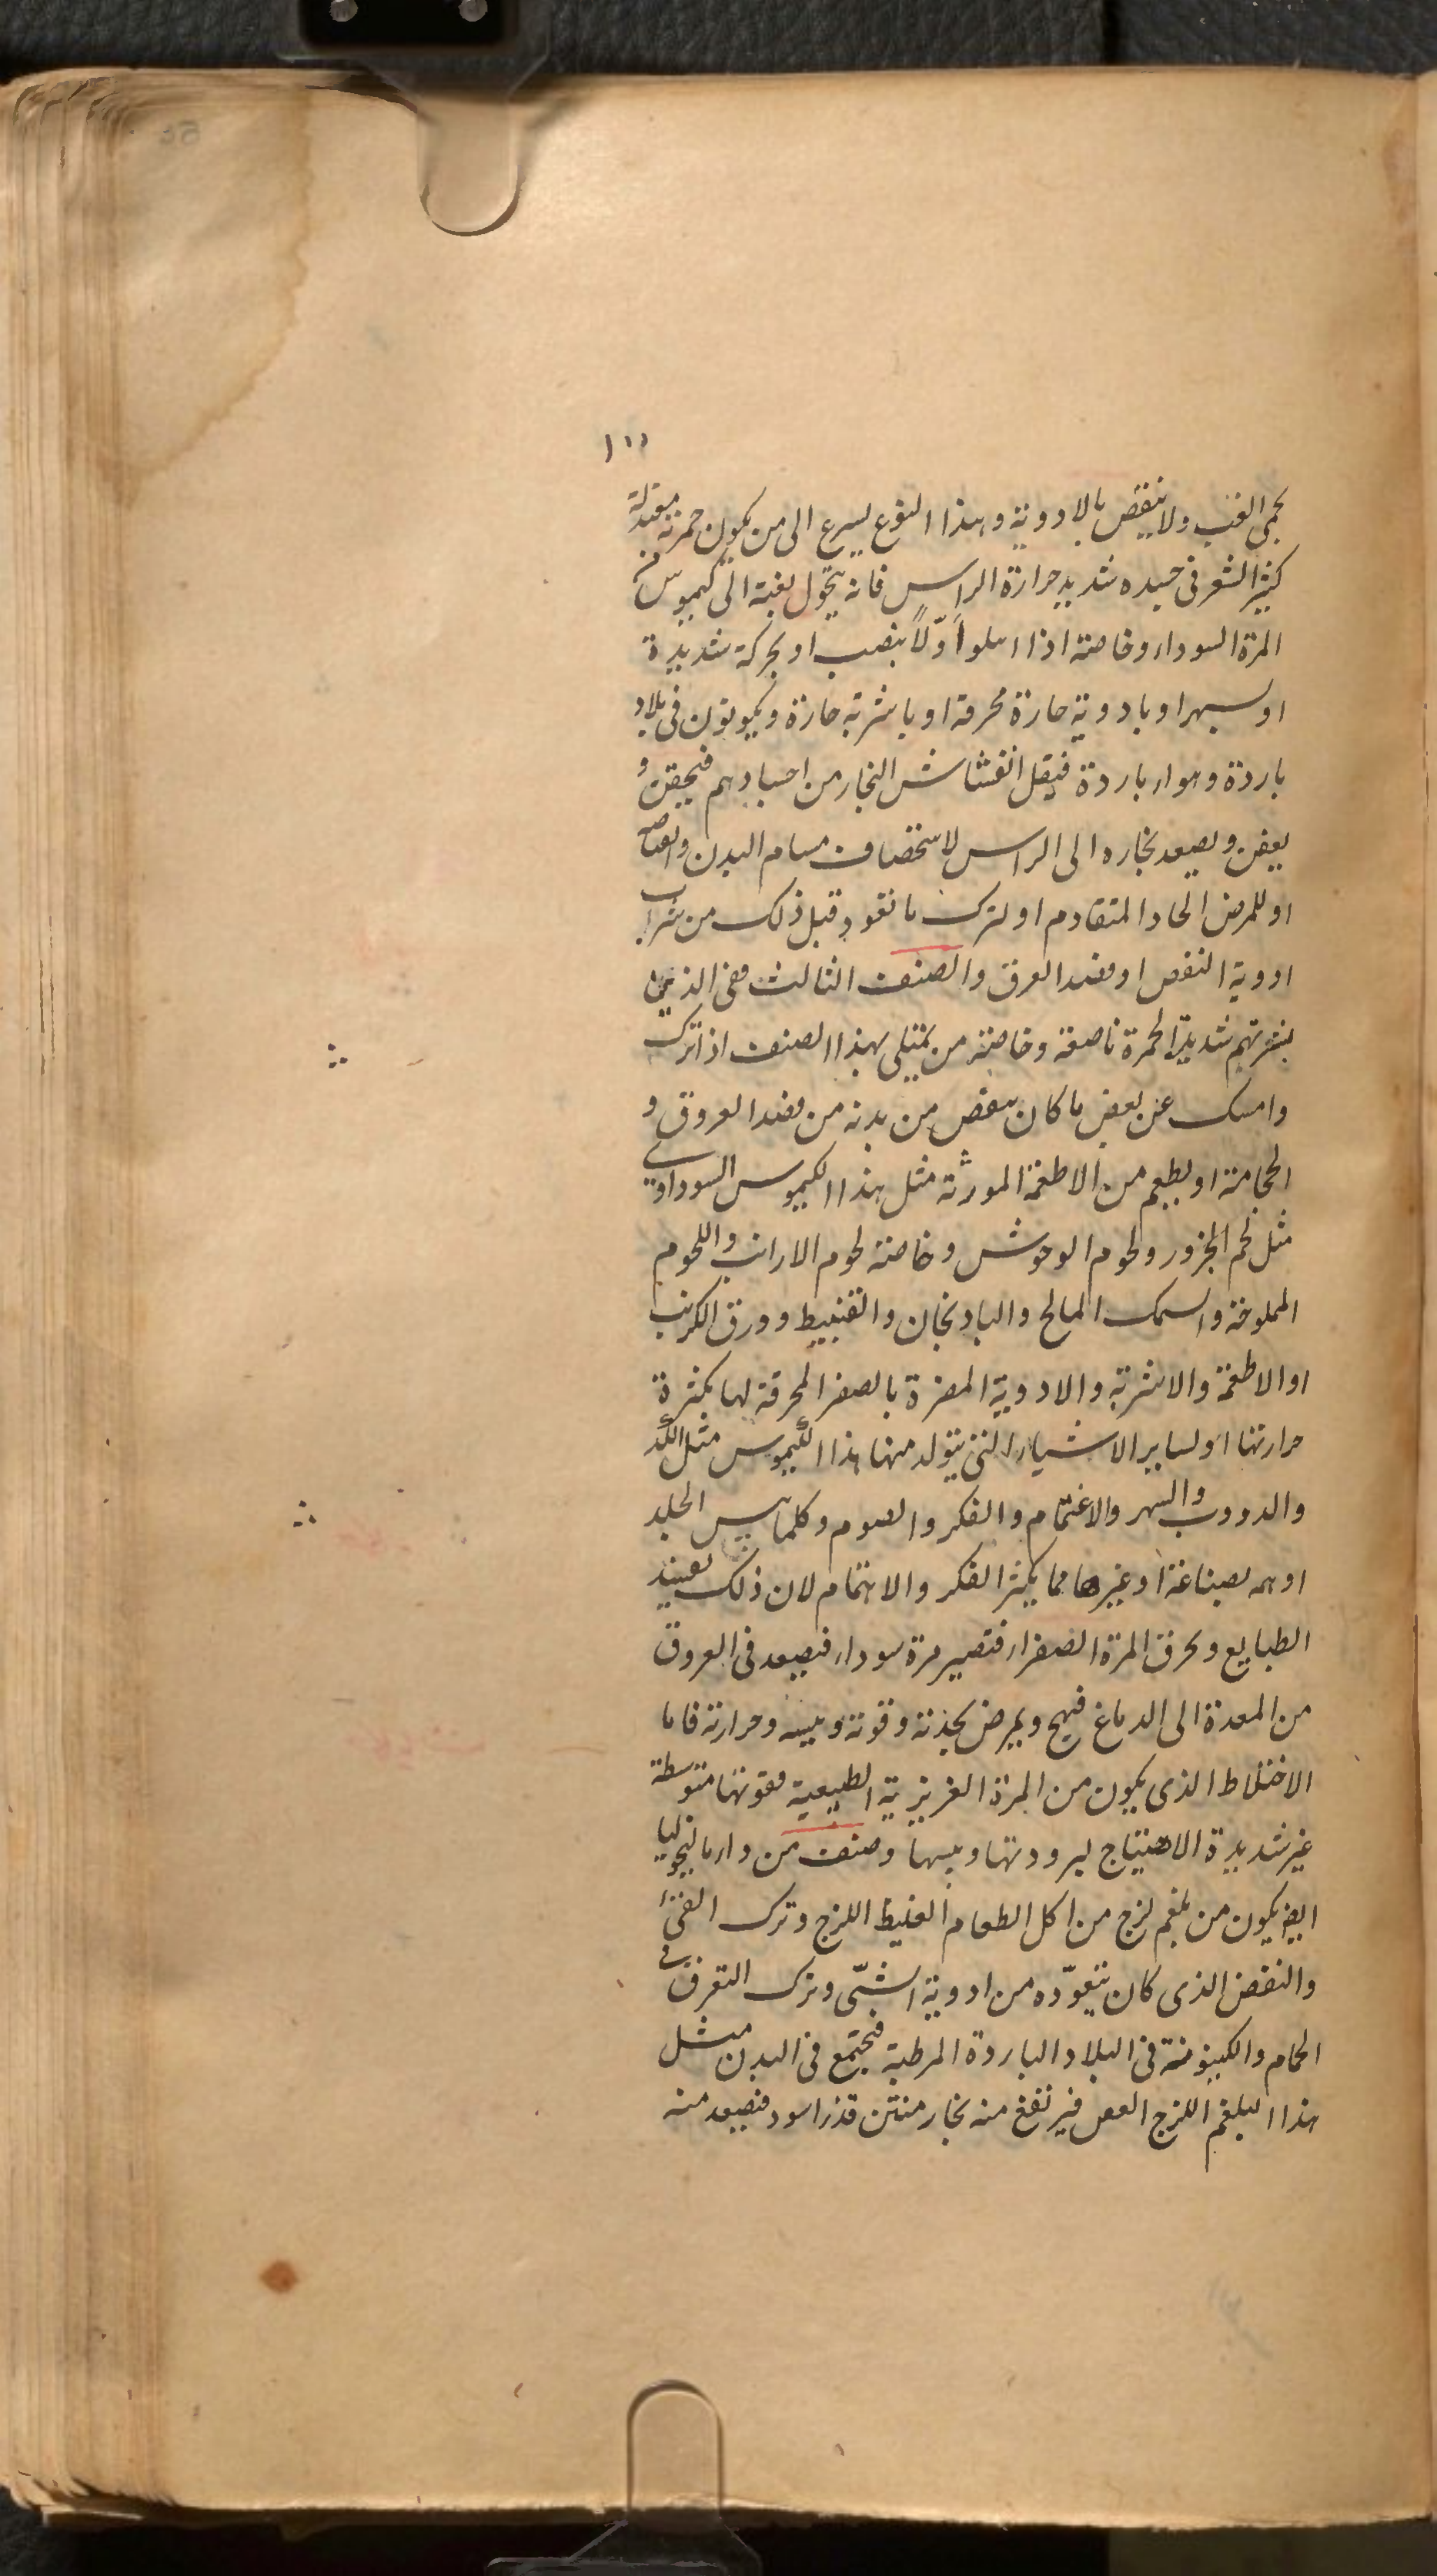 ١١١
بحمى الغب ولا ينقص بالادوية وهذا النوع يسرع الى من يكون حمرته معتدلة
كثير الشعر فى جسده شديد حرارة الراس فانه يتحول بغتة الى كيموس من
المرة السوداء وخاصة اذا ابتلوا اوّلاً بنصب او بحركة شديدة
او سهر او بادوية حارة محرقة او باشربة حارة ويكونون فى بلاد
باردة وهواء باردة فيقل انفشاش البخار من اجسادهم فيحتقن و
يعفن ويصعد بخاره الى الراس لاستحصاف مسام البدن
او للمرض الحاد المتقادم او لترك ما تعود قبل ذلك من شراب
ادوية النفض او فصد العرق والصنف الثالث ففى الذين
بشرتهم شديدة الحمرة ناصعة وخاصة من يمتلى بهذا الصنف اذا ترك
وامسك عن بعض ما كان ينقص من بدنه من فصد العروق و
الحجامة او يطعم من الاطعمة المورثة مثل هذا الكيموس السوداوى
مثل لحم الجزور ولحوم الوحوش وخاصة لحوم الارانب واللحوم
المملوحة والسمك المالح والبادنجان والقنبيط وورق الكرنب
او الاطعمة والاشربة والادوية المضرة بالصفر المحرقة لها بكثرة
حرارتها او لساير الاشياء التى يتولد منها هذا الكيموس مثل الكد
والدووب والسهر والاغتمام والفكر والصوم وكلما يبس الجلد
او همه بصناعة او غيرها مما يكثر الفكر والاهتمام لان ذلك يفسد
الطبايع ويحرق المرة الصفراء فتصير مرة سوداء فيصعد فى العروق
من المعدة الى الدماغ فيهج ويمرض بحدته وقوته ويبسه وحرارته فاما
الاختلاط الذى يكون من المرة الغريزية الطبيعية فقوتها متوسطة
غير شديدة الاهتياج لبرودتها ويبسها وصنف من داء مالنخوليا
ايضا يكون من بلغم لزج من اكل الطعام الغليظ اللزج وترك القئ
والنفض الذى كان يتعوّده من ادوية المشّى وترك التعرق فى
الحمام والكينونة فى البلاد الباردة المرطبة فيجتمع فى البدن مثل
هذا البلغم اللزج العفص فيرتفع منه بخار منتن قذر اسود فيصعد منه